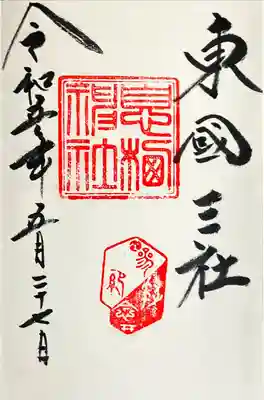 東國三社
息栖
神社
令和五年五月二十七日